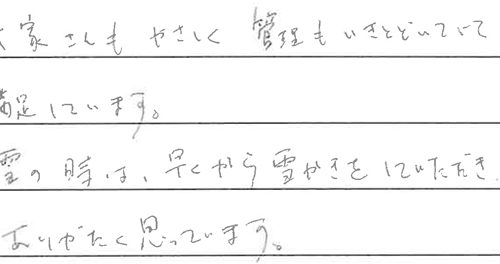 大家さんもやさしく 管理もいきとどいていて
満足しています。
雪の時は、早くから雪かきをしていただき
ありがたく思っています。